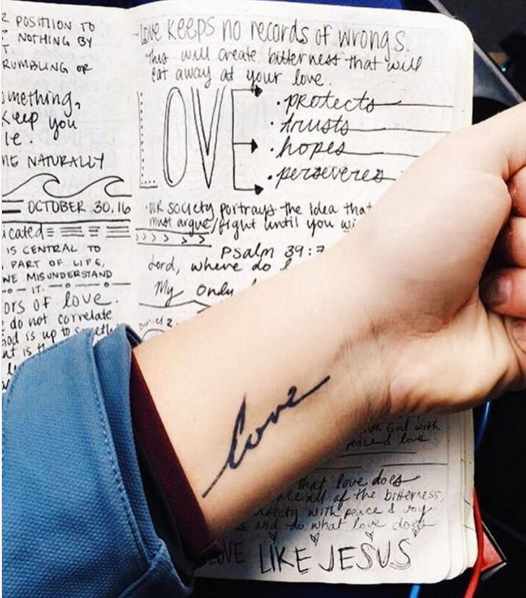 R POSITION TO
NOTHING BY
T.
RUMBLING OR
omething,
keep you
le.
ME NATURALLY
OCTOBER 30, 16
icated
IS CENTRAL TO
PART OF LIFE,
WE MISUNDERSTAND
IT.
ors of love.
do not correlate
God is up to
at is th
love KEEPS no records of wrongs.
this will create bitterness that will
eat away at your love.
LOVE
• protects
• trusts
• hopes
• perseveres
our society portrays the idea that
must argue/fight until you wi
Psalm 39:7
Lord, where do
My only
Daniel 2
love
God with
peace & love
that love does
all of the bitterness,
anxiety with peace & joy
and do what love does
LOVE LIKE JESUS